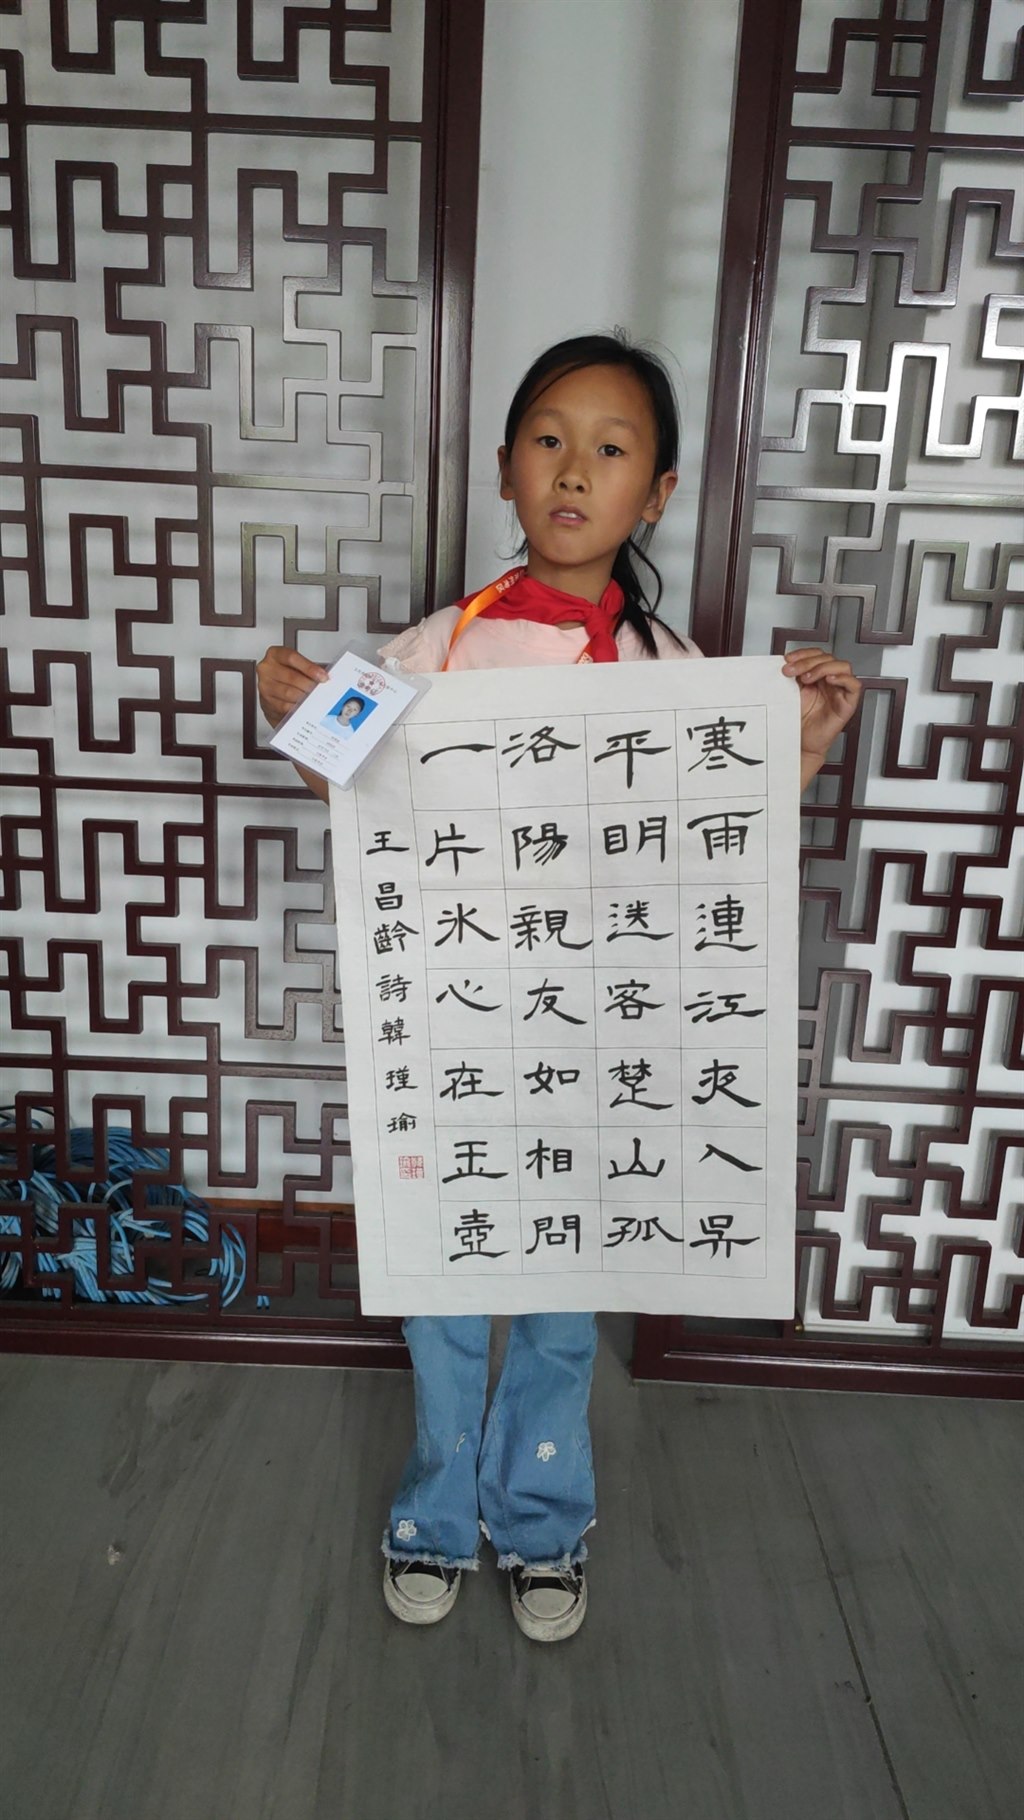 寒雨連江夜入吴
平明送客楚山孤
洛陽親友如相問
一片冰心在玉壺
王昌齡詩韓瑾瑜